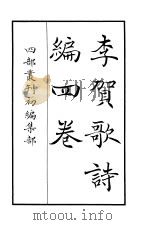 李賀歌詩
編四卷
四部叢刊初編集部
mtoou.info